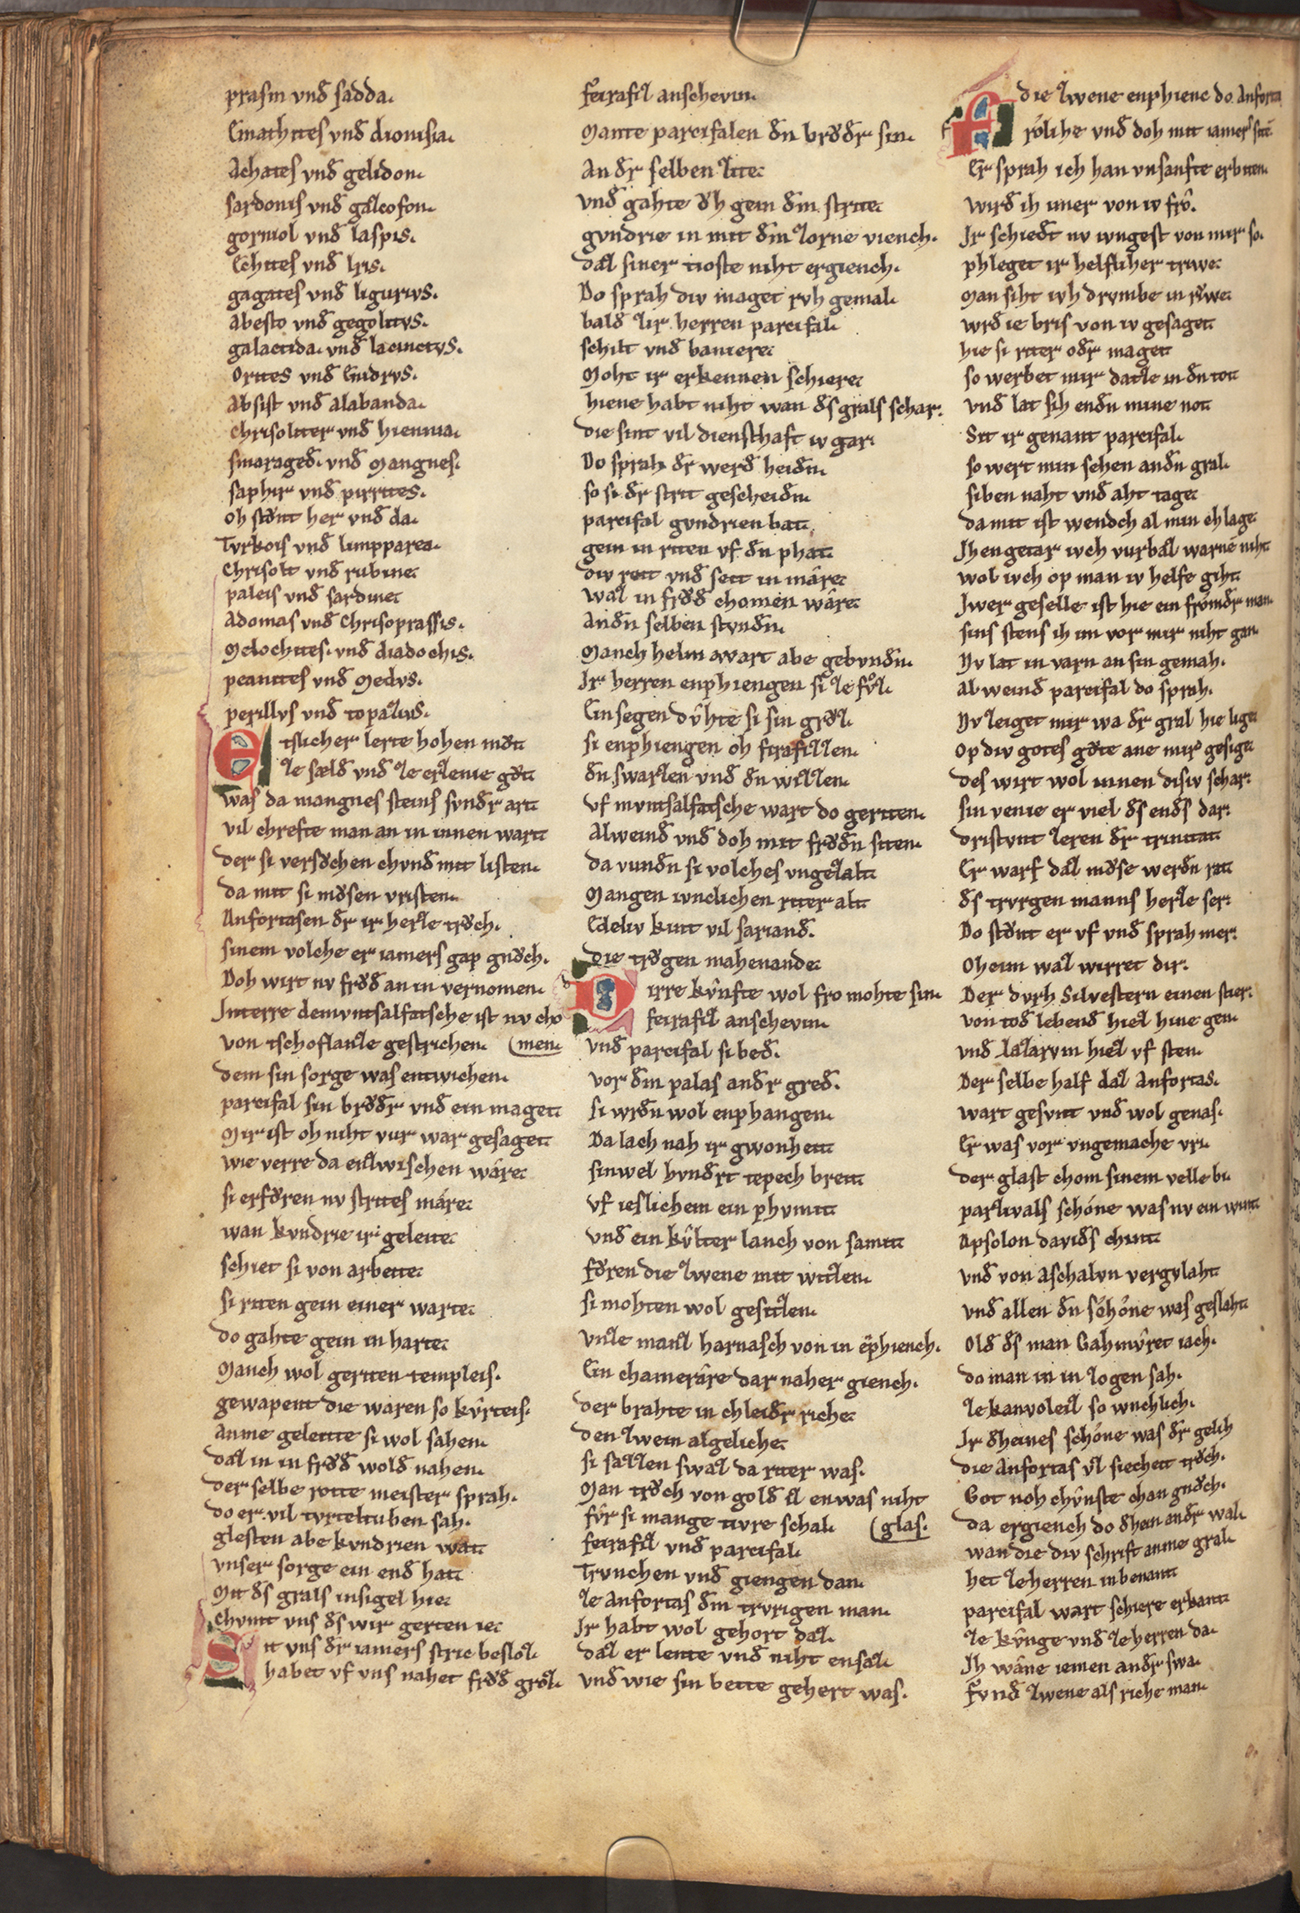 prasin vnd sadda.
Emathites vnd dionisia.
Achates vnd gelidon.
sardonis vnd galcofon.
gorniol vnd iaspis.
Echites vnd Iris.
gagates vnd ligurivs.
Abesto vnd gegolitvs.
galactida. vnd Iacinctvs.
Orites vnd Enidrvs.
Absist vnd alabanda.
chrisolter vnd hiennia.
smaraged. vnd Mangnes.
saphir vnd pirrites.
Oh stvnt her vnd da.
Tvrkois vnd limpparea.
chrisolt vnd rubine.
paleis vnd sardine.
Adomas vnd chrisoprassis.
Melochites. vnd diadochis.
peanites vnd Medvs.
perillvs vnd topazivs.
Etslicher lerte hohen mvt.
ze sæld vnd ze erzenie gvt.
was da mangnes steins svndr art.
vil chrefte man an in innen wart.
der si versvchen chvnd mit listen.
da mit si mvsen vristen.
Anfortasen dr ir herze trvch.
sinem volche er iamers gap gnvch.
Doh wirt nv frvd an in vernomen.
Interre demvntsalfatsche ist nv cho
von tschoflanze gestrichen. (men.
dem sin sorge was entwichen.
parcifal sin brvdr vnd ein maget.
Mir ist oh niht vur war gesaget.
wie verre da enzwischen wâre.
si erfvren nv strites mâre.
wan kvndrie ir geleite.
schiet si von arbeite.
si riten gein einer warte.
do gahte gein in harte.
Manch wol geriten templeis.
gewapent die waren so kvrteis.
anme geleitte si wol sahen.
daz in in frvd wold nahen.
der selbe rotte meister sprah.
do er vil tvrteltuben sah.
glesten abe kvndrien wat.
vnser sorge ein end hat.
Mit ds grals insigel hie.
chvmt vns ds wir gerten ie.
Sit vns dr iamers stric besloz.
habet vf vns nahet frvd groz.
feirafiz anschevin.
Mante parcifalen dn brvdr sin.
An dr selben zite.
vnd gahte dh gein dm strite.
gvndrie in mit dm zorne viench.
daz siner tioste niht ergiench.
Do sprah div maget rvh gemal.
bald zir herren parcifal.
schilt vnd baniere.
Moht ir erkennen schiere.
hiene habt niht wan ds grals schar.
die sint vil diensthaft iv gar.
Do sprah dr werd heidn.
so si dr strit gescheidn.
parcifal gvndrien bat.
gein in riten vf dn phat.
div reit vnd seit in mâre.
waz in frvd chomen wâre.
An dn selben stvndn.
Manch helm wart abe gebvndn.
Ir herren enphiengen si ze fvz.
Ein segen dvhte si sin grvz.
si enphiengen oh feirafizzen.
dn swarzen vnd dn wizzen.
vf mvntsalfatsche wart do geriten.
Alweind vnd doh mit frvdn siten.
da vundn si volches vngezalt.
Mangen wnclichen riter alt.
Edeliv kint vil sariand.
die trvgen mahenande.
Dirre kvnfte wol fro mohte sin.
feirafiz anschevin.
vnd parcifal si bed.
vor dm palas an dr gred.
si wrdn wol enphangen.
Da lach nah ir gwonheit.
sinwel hvndrt tepech breit.
vf ieslichem ein phvmit.
vnd ein kvlter lanch von samit.
fvren die zwene mit witzen.
si mohten wol gesitzen.
vnze manz harnasch von in ephiench.
Ein chamerâre dar naher giench.
der brahte in chleidr riche.
den zwein algeliche.
si sazzen swaz da riter was.
Man trvch von gold ez enwas niht
fvr si mange tivre schal. (glas.
feirafiz vnd parcifal.
Trvnchen vnd giengen dan.
ze Anfortas dm trvrigen man.
Ir habt wol gehort daz.
daz er lente vnd niht ensaz.
vnd wie sin bette gehert was.
die zwene enphienc do. Anforta
Frôliche vnd doh mit iamers site
Er sprah ich han vnsanfte erbiten.
wird ih imer von iv fro.
Ir schiedt nv ivngest von mir so.
phleget ir helflicher triwe.
Man siht ivh drvmbe in rîwe.
wrd ie bris von iv gesaget.
hie si riter odr maget.
so werbet mir datze in dn tot.
vnd lat sih endn mine not.
Sit ir genant parcifal.
so wert min sehen an dn gral.
siben naht vnd aht tage.
da mit ist wendch al min chlage.
Ihengetar ivch vurbaz warne niht
wol ivch op man iv helfe giht.
Iwer geselle ist hie ein frômdr man.
sins stens ih im vor mir niht gan.
Nv lat in varn an sin gemah.
alweind parcifal do sprah.
Nv zeiget mir wa dr gral hie lige.
op div gotes gvte ane mir gesige.
des wirt wol innen disiv schar.
sin venie er viel ds ends dar.
dristvnt zeren dr trinitat.
Er warf daz mvse werdn rat.
ds trvrgen manns herze ser.
Do stvnt er vf vnd sprah mer.
Oheim waz wirret dir.
Der dvrh Silvestern einen stier.
von tod lebend hiez hine gen.
vnd lazarvm hiez vf sten.
Der selbe half daz Anfortas.
wart gesvnt vnd wol genas.
Er was vor vngemache vri.
der glast chom sinem velle bi.
parzivals schône was nv ein wint
Apsolon davids chint.
vnd von aschalvn vergvlaht.
vnd allen dn schône was geslaht.
Old ds man Gahmvret iach.
do man in in zogen sah.
ze kanvoleiz so wnchlich.
Ir dheines schône was dr gelih
die Anfortas vz siecheit trvch.
Got noh chvnste chan gnvch.
da ergiench do dhein andr wal.
wan die div schrift anme gral.
het ze herren in benant.
parcifal wart schiere erkant.
ze kvnge vnd ze herren da.
Ih wâne iemen andr swa.
Fvnd zwene als riche man.